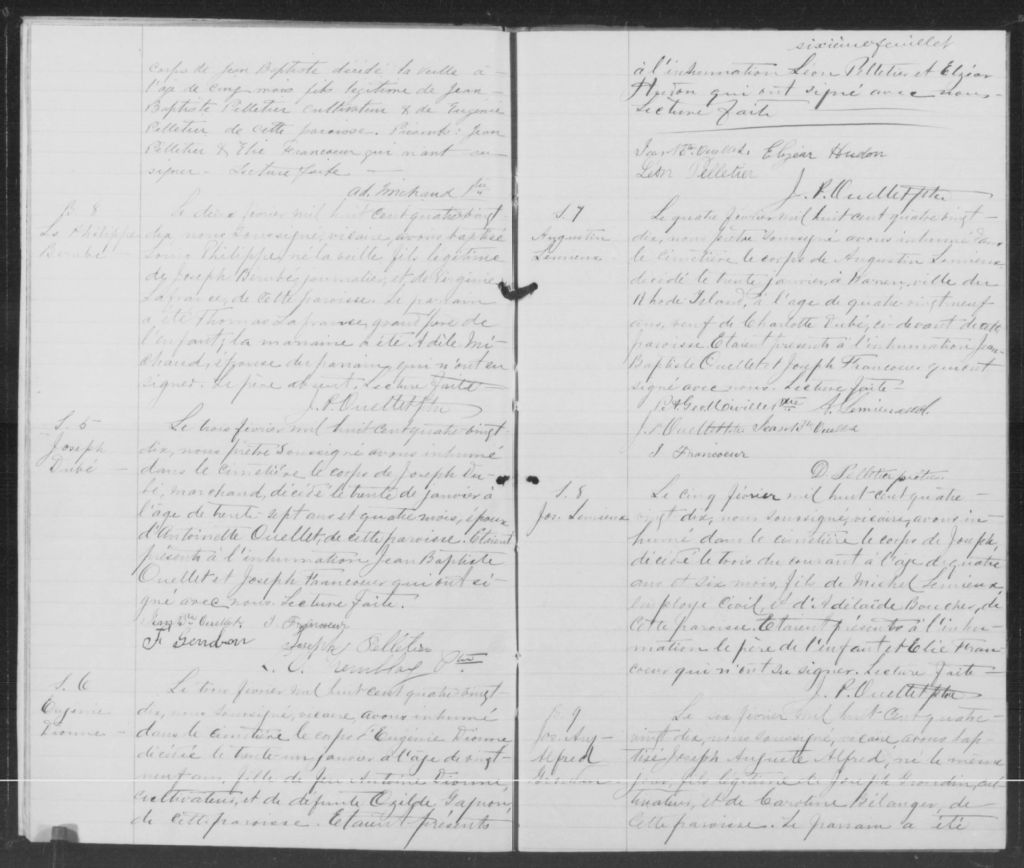 corps de Jean Baptiste décédé la veille à
l'age de cinq mois fils légitime de Jean-
Baptiste Pelletier cultivateur & de Eugénie
Pelletier de cette paroisse. Présents: Jean
Pelletier & Elie Francoeur qui n'ont su
signer. Lecture faite
Ad. Michaud Ptre
B. 8
Ls Philippe
Berubé
Le deux février mil huit cent quatre vingt
dix, nous soussigné, vicaire, avons baptisé
Louis Philippe, né la veille, fils légitime
de Joseph Berubé, journalier, et de Virginie
Lafrance, de cette paroisse. Le parrain
a été Thomas Lafrance, grand père de
l'enfant; la marraine a été Adèle Mi-
chaud, épouse du parrain, qui n'ont su
signer. Le père absent. Lecture faite
J. P. Ouellet ptre
S. 5
Joseph
Dubé
Le trois février mil huit cent quatre vingt
dix, nous prêtre soussigné avons inhumé
dans le cimetière le corps de Joseph Du-
bé, marchand, décédé le trente de janvier à
l'age de trente-sept ans et quatre mois, époux
d'Antoinette Ouellet, de cette paroisse. Etaient
présents à l'inhumation Jean Baptiste
Ouellet et Joseph Francoeur qui ont si-
gné avec nous. Lecture faite.
Jean Bte Ouellet J. Francoeur
F. Gendron Joseph Pelletier
Tremblay Ptre
S. 6
Eugénie
Dionne
Le trois février mil huit cent quatre vingt
dix, nous soussigné, vicaire, avons inhumé
dans le cimetière le corps d'Eugénie Dionne
décédée le trente-un janvier à l'age de vingt-
neuf ans, fille de feu Antoine Dionne,
cultivateur, et de défunte Ozilde Gagnon,
de cette paroisse. Etaient présents
sixième feuillet
à l'inhumation Léon Pelletier et Elzéar
Hudon qui ont signé avec nous
Lecture faite
Jean Bte Ouellet Elzéar Houdon
Léon Pelletier
J. P. Ouellet ptre
S. 7
Augustin
Lemieux
Le quatre février mil huit cent quatre vingt
dix, nous prêtre soussigné avons inhumé dans
le cimetière le corps de Augustin Lemieux
décédé le trente janvier, à Warren, ville du
Rhode Island, à l'age de quatre-vingt neuf
ans, veuf de Charlotte Dubé, ci-devant de cette
paroisse. Etaient présents à l'inhumation Jean
Baptiste Ouellet et Joseph Francoeur qui ont
signé avec nous. Lecture faite
ptre A. Lemieux
J. P. Ouellet ptre Jean Bte Ouellet
J. Francoeur
D. Pelletier prêtre
S. 8
Jos. Lemieux
Le cinq février mil huit cent quatre
vingt dix, nous soussigné, vicaire, avons in-
humé dans le cimetière le corps de Joseph,
décédé le trois du courant à l'age de quatre
ans et six mois, fils de Michel Lemieux,
employé civil, et d'Adélaide Boucher, de
cette paroisse. Etaient présents à l'inhu-
mation le père de l'enfant et Elie Fran-
coeur qui n'ont su signer. Lecture faite
J. P. Ouellet ptre
B. 9
Jos. Aug-
Alfred
Le six février mil huit cent quatre-
vingt dix, nous soussigné, vicaire, avons bap-
tisé Joseph Auguste Alfred, né le même
jour, fils légitime de Joseph Grondin, cul-
tivateur, et de Caroline Bélanger, de
cette paroisse. Le parrain a été